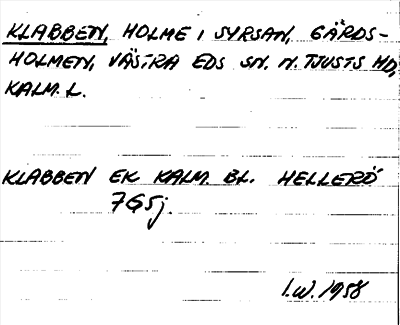 KLABBEN, HOLME I SYRSAN, GÄRDS-
HOLMEN, VÄSTRA EDS SN. N. TJUSTS HD,
KALM. L.
KLABBEN EK KALM. BL. HELLERÖ
7G5j.
I.W. 1958